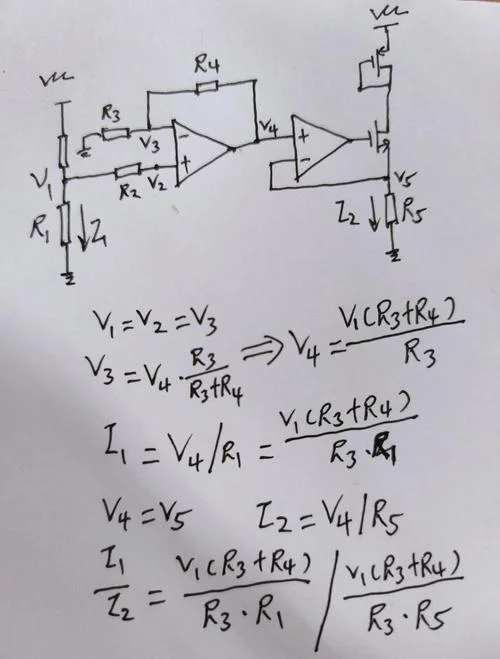 Vcc
Vcc
R4
R3
V3
V4
V1
R2
V2
V5
R1
I1
I2
R5
V1 = V2 = V3
V3 = V4 · R3/(R3+R4) ⟹ V4 = V1(R3+R4)/R3
I1 = V4/R1 = V1(R3+R4)/(R3·R1)
V4 = V5    I2 = V4/R5
I1/I2 = V1(R3+R4)/(R3·R1) / V1(R3+R4)/(R3·R5)